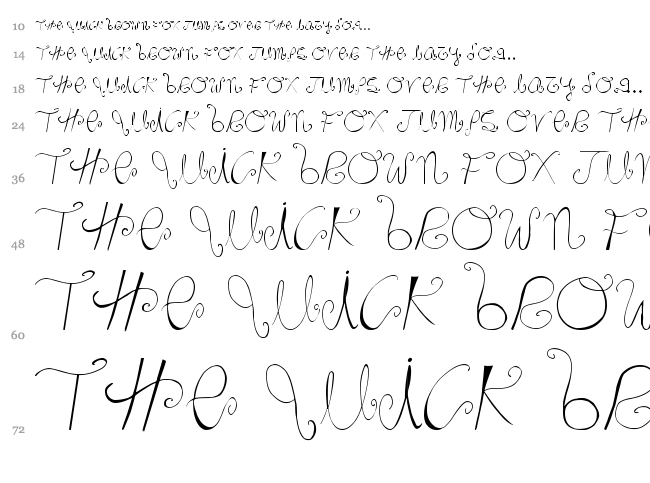 10 The quick brown fox jumps over the lazy dog..
14 The quick brown fox jumps over the lazy dog..
18 The quick brown fox jumps over the lazy dog..
24 The quick brown fox jumps over th
36 The quick brown fox jum
48 The quick brown f
60 The quick brow
72 The quick br